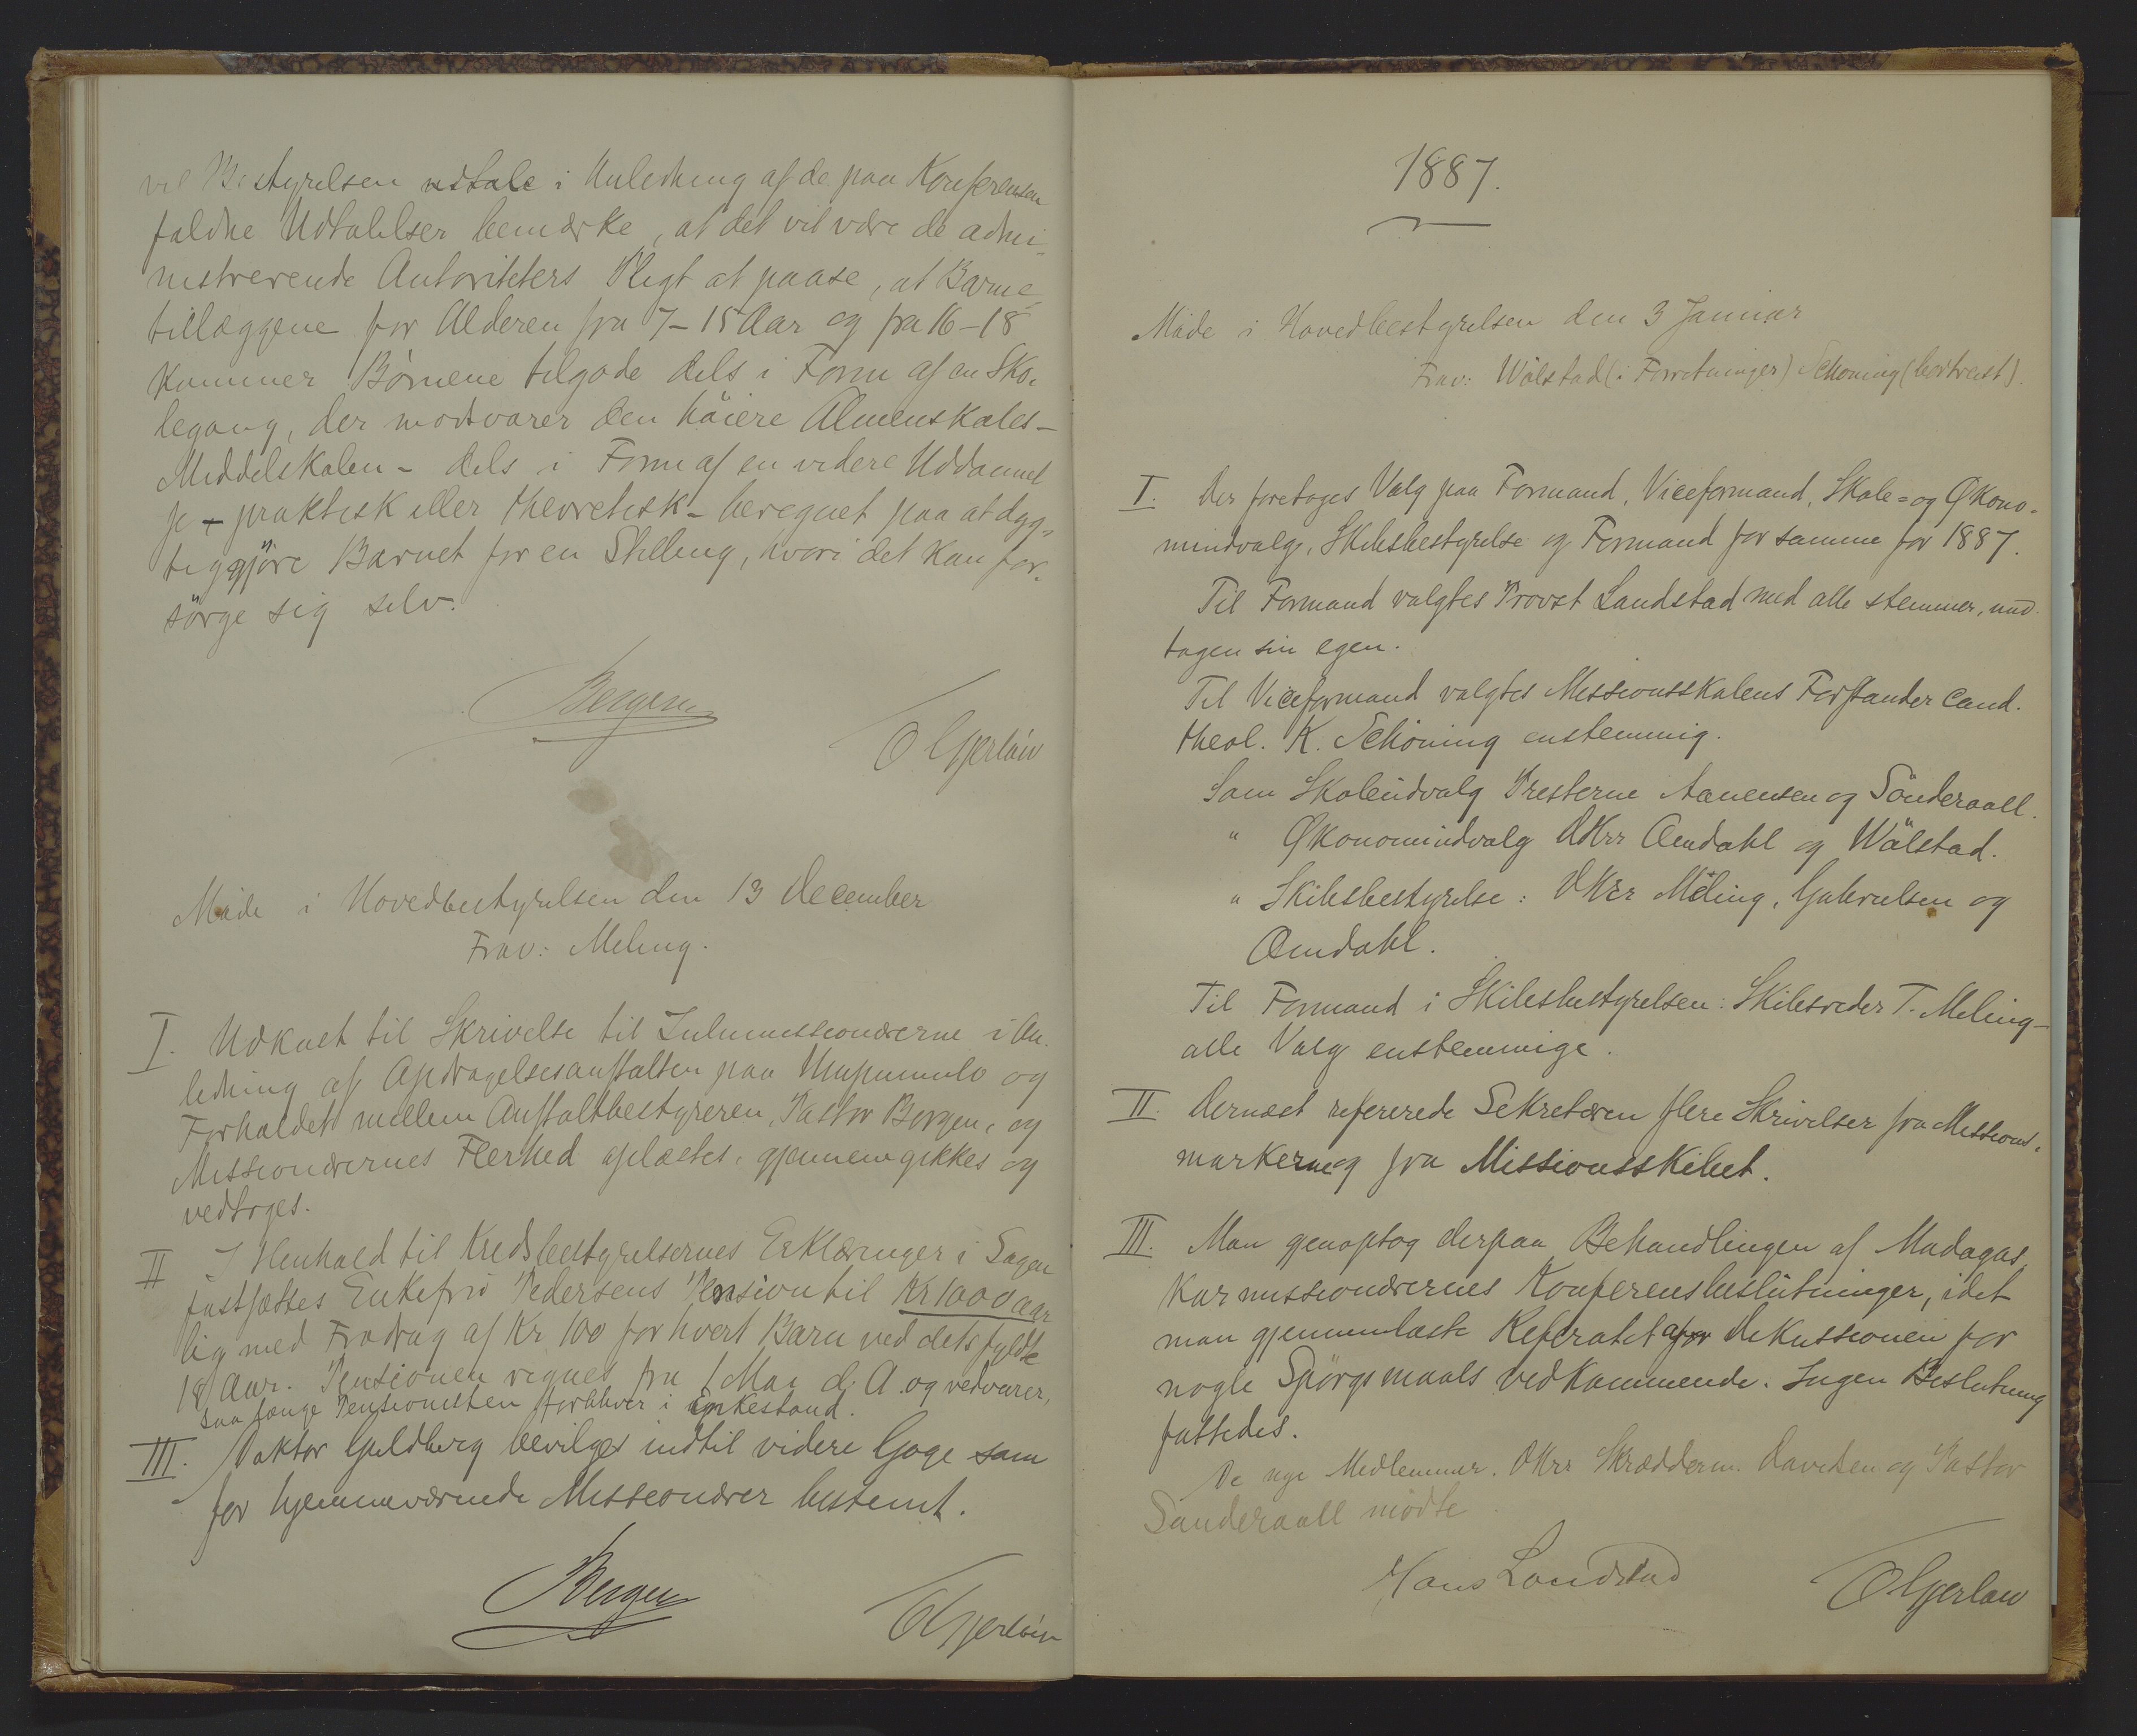 vil Bestyrelsen udtale i Anledning af de paa Konferensen
faldne Udtalelser bemærke, at det vil være de admi-
nistrerende Autoriteters Pligt at paase, at Barne-
tillæggene for Alderen fra 7-15 Aar og fra 16-18
kommer Börnene tilgode dels i Form af en Sko-
legang, der modsvarer den höiere Almenskoles-
Middelskolen - dels i Form af en videre Uddannel
se - praktisk eller theoretisk - beregnet paa at dyg-
tiggjöre Barnet for en Stilling, hvori det kan for-
sörge sig selv.
Borgen
O Gjerløw
Møde i Hovedbestyrelsen den 13 December
Frav: Meling.
I. Udkast til Skrivelse til Zulumissionærerne i An-
ledning af Opdragelsesanstalten paa Umpumulo og
Forholdet mellem Anstaltbestyreren, Pastor Borgen, og
Missionærernes Flerhed oplæstes, gjennemgikkes og
vedtoges.
II I Henhold til Kredsbestyrelsernes Erklæringer i Sagen
fastsættes Enkefru Pedersens Pension til Kr 1000 aar
lig med Fradrag af Kr 100 for hvert Barn ved dets fyldte
18 Aar. Pensionen regnes fra 1 Mai d. A. og vedvarer,
saa længe Pensionisten forbliver i Enkestand.
III. Doktor Guldberg bevilges indtil videre Gage som
for hjemmeværende Missionærer bestemt.
Borgen
O Gjerløw
1887.
Møde i Hovedbestyrelsen den 3 Januar
Frav: Wålstad (i Forretninger) Schøning (bortreist).
I. Der foretoges Valg paa Formand, Viceformand, Skole- og Økono-
miudvalg, Skibsbestyrelse og Formand for samme for 1887.
Til Formand valgtes Provst Landstad med alle stemmer, und-
tagen sin egen.
Til Viceformand valgtes Missionsskolens Forstander Cand.
theol. K. Schøning enstemmig.
Som Skoleudvalg Presterne Aanensen og Sönderaall.
" Økonomiudvalg DHrr Omdahl og Wålstad.
" Skibsbestyrelse: DHrr Meling, Gabrielsen og
Omdahl.
Til Formand i Skibsbestyrelsen: Skibsreder T. Meling-
alle Valg enstemmige.
II. Dernæst refererede Sekretæren flere Skrivelser fra Missions-
markerne og fra Missionsskibet.
III. Man genoptog derpaa Behandlingen af Madagas-
karmissionærernes Konferensbeslutninger, idet
man gjennemlæste Referatet af Diskussionen for
nogle Spörgsmaals vedkommende. Ingen Beslutning
fattedes.
De nye Medlemmer. DHrr Skrædderm. Davidsen og Pastor
Sønderaall mødte
Hans Landstad
O Gjerløw